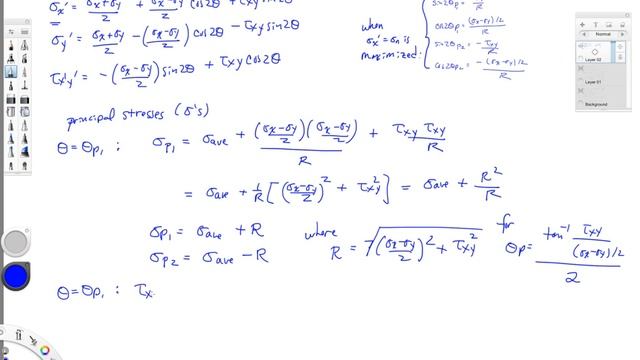 σx' = (σx+σy)/2 + (σx-σy)/2 cos2θ + τxy sin2θ
σy' = (σx+σy)/2 - ((σx-σy)/2) cos2θ - τxy sin2θ
τx'y' = -((σx-σy)/2) sin2θ + τxy cos2θ
when
σx' = σn is
maximized:
sin2θp1 = τxy/R
cos2θp1 = (σx-σy)/2 / R
sin2θp2 = -τxy/R
cos2θp2 = -(σx-σy)/2 / R
Normal
Layer 02
Layer 01
Background
principal stresses (σ's)
θ=θp1 : σp1 = σave + ((σx-σy)/2)((σx-σy)/2)/R + τxy τxy/R
= σave + 1/R [((σx-σy)/2)² + τxy²] = σave + R²/R
σp1 = σave + R where R = √(((σx-σy)/2)² + τxy²) for θp = tan⁻¹ (τxy/((σx-σy)/2)) / 2
σp2 = σave - R
θ=θp1 : τx